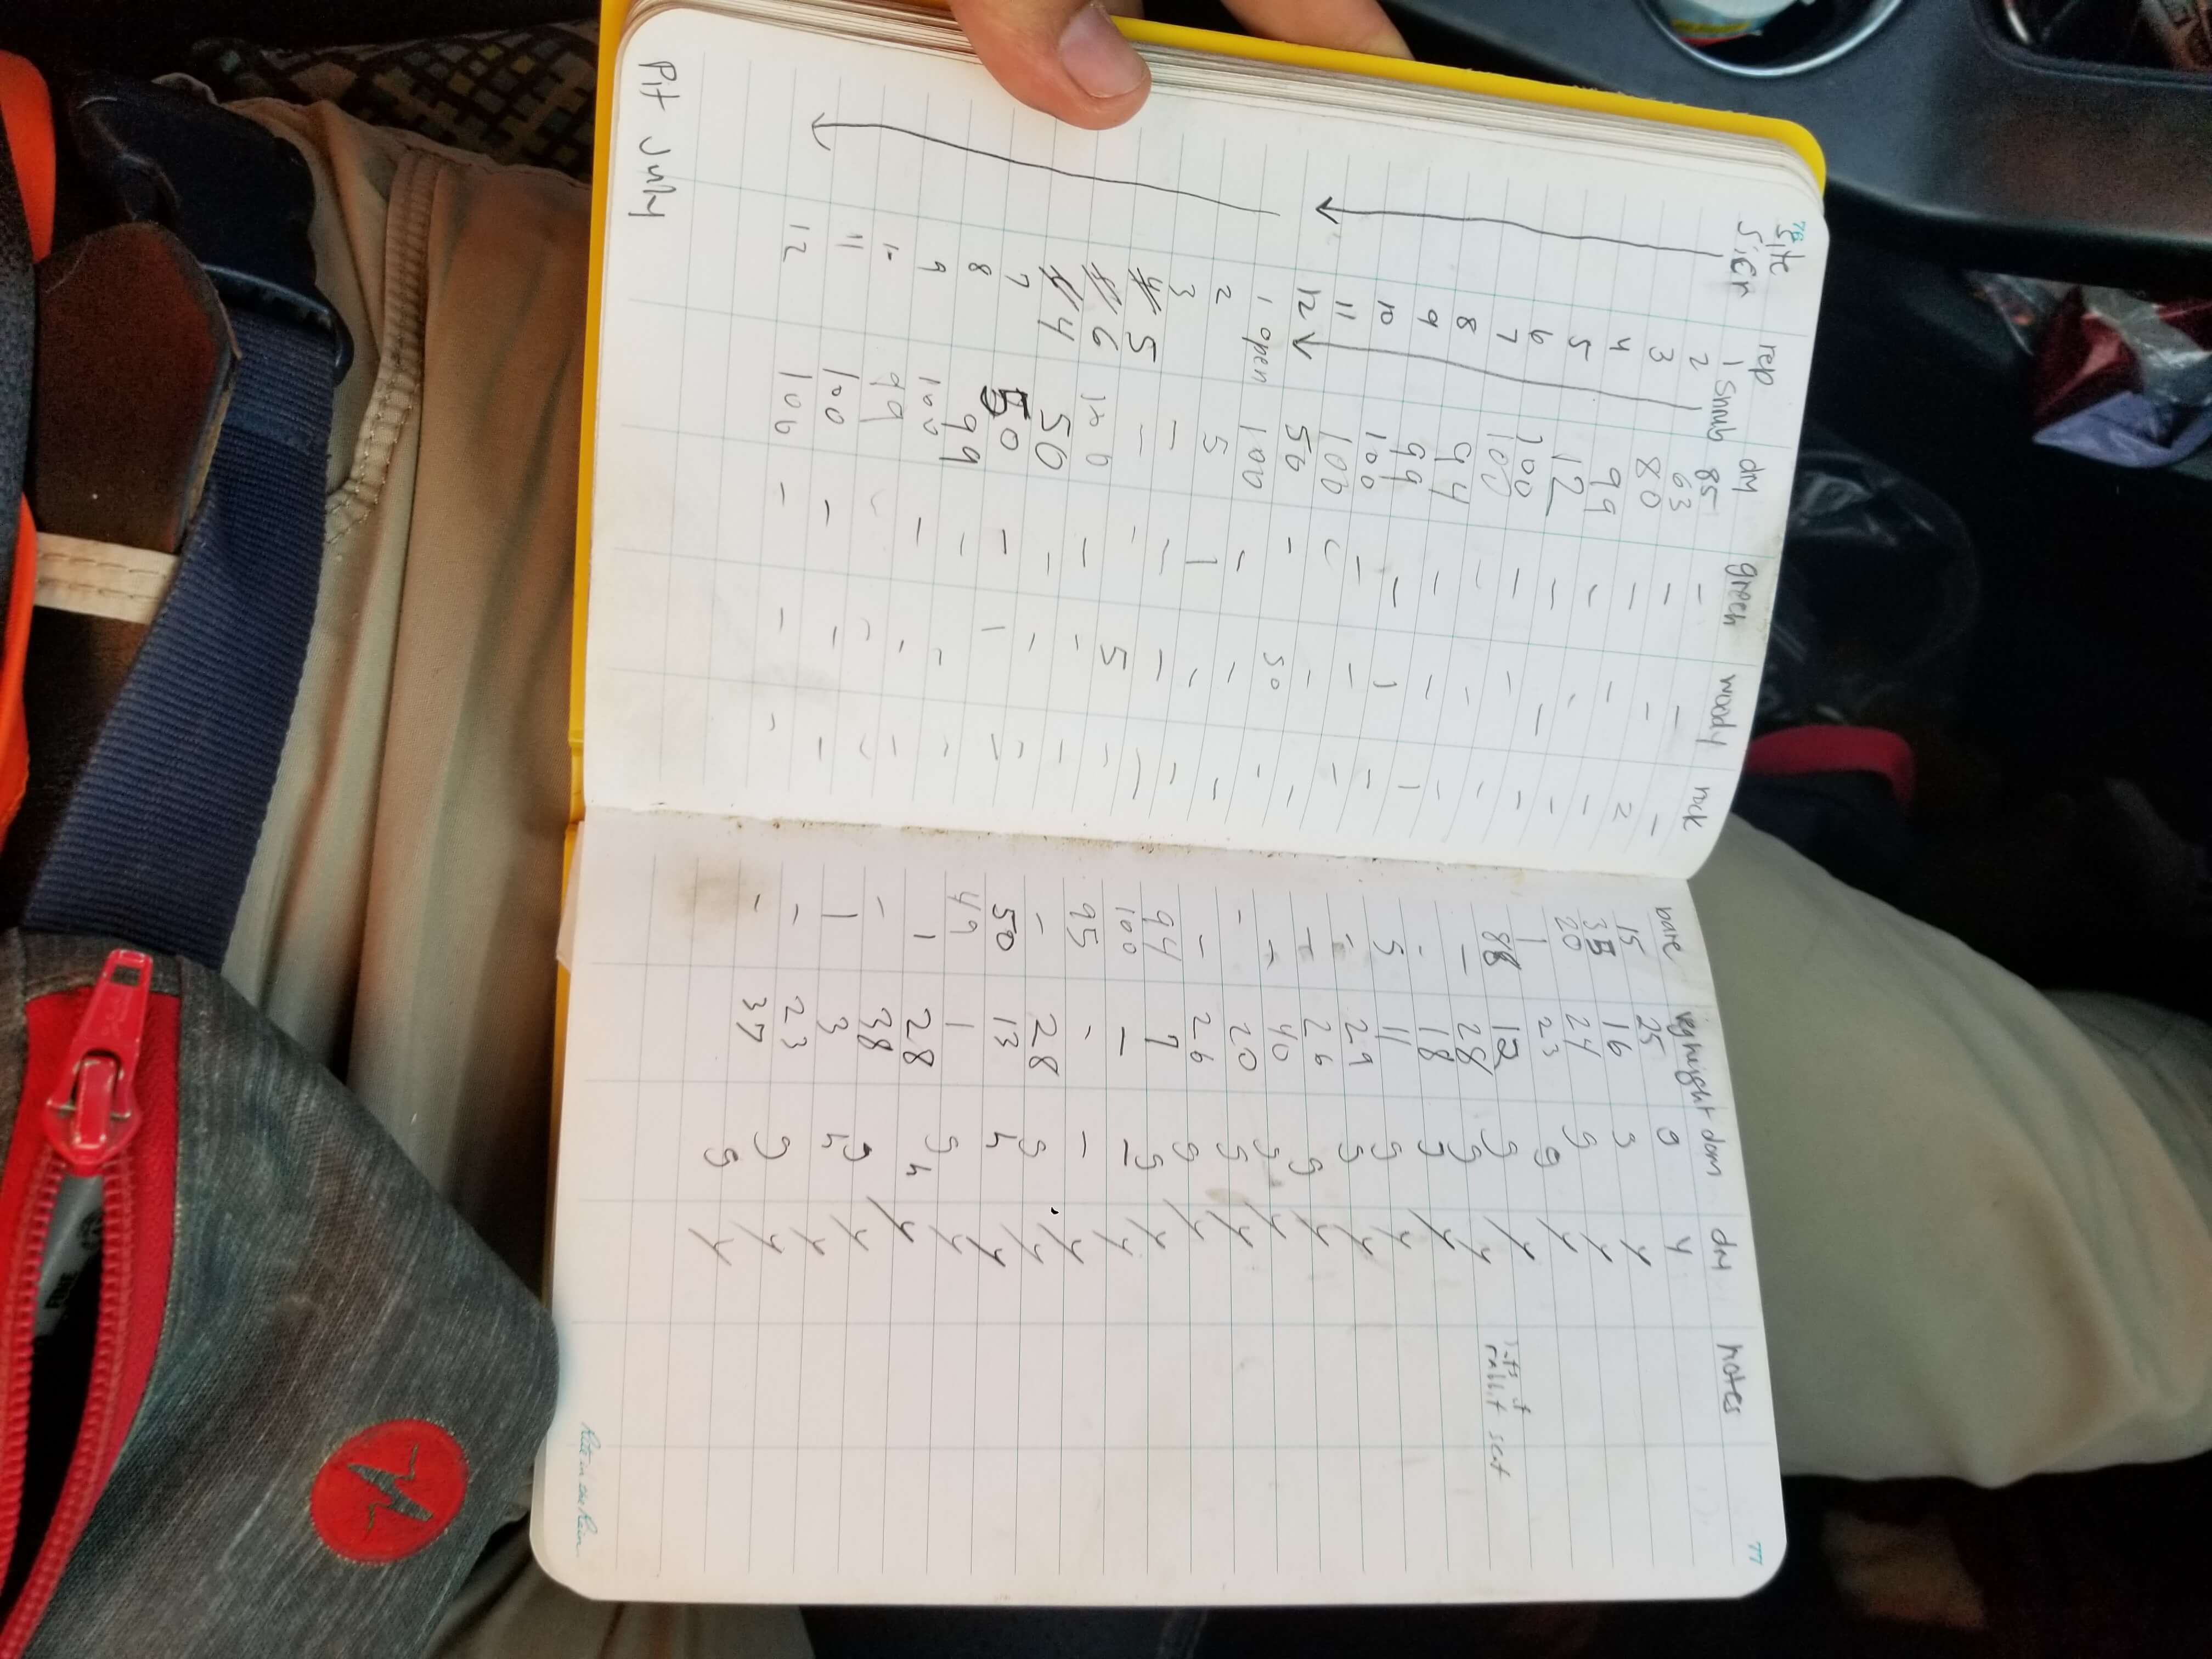 76 77
Site rep dry green woody rock bare vegheight dom dry notes
Sier 1 shrub 85 - - - 15 25 g y
2 63 - - 2 35 16 g y
3 80 - - - 20 24 g y
4 99 - - - 1 23 g y
5 12 - - - 88 12 g y lots of rabbit scat
6 100 - - - - 28 g y
7 100 - - - - 18 g y
8 94 - - 1 5 11 g y
9 99 - 1 - - 29 g y
10 100 - - - - 26 g y
11 100 - - - - 40 g y
12 50 - 50 - - 20 g y
1 open 100 - - - - 26 g y
2 5 1 - - 94 7 g y
3 - - - - 100 - - y
5 - - 5 - 95 - - y
6 100 - - - - 28 g y
4 50 - - - 50 13 h y
7 50 - 1 - 49 1 g y
8 99 - - - 1 28 h y
9 100 - - - - 38 g y
10 99 - - - 1 3 h y
11 100 - - - - 23 g y
12 100 - - - - 37 g y
Pit July
Rite in the Rain